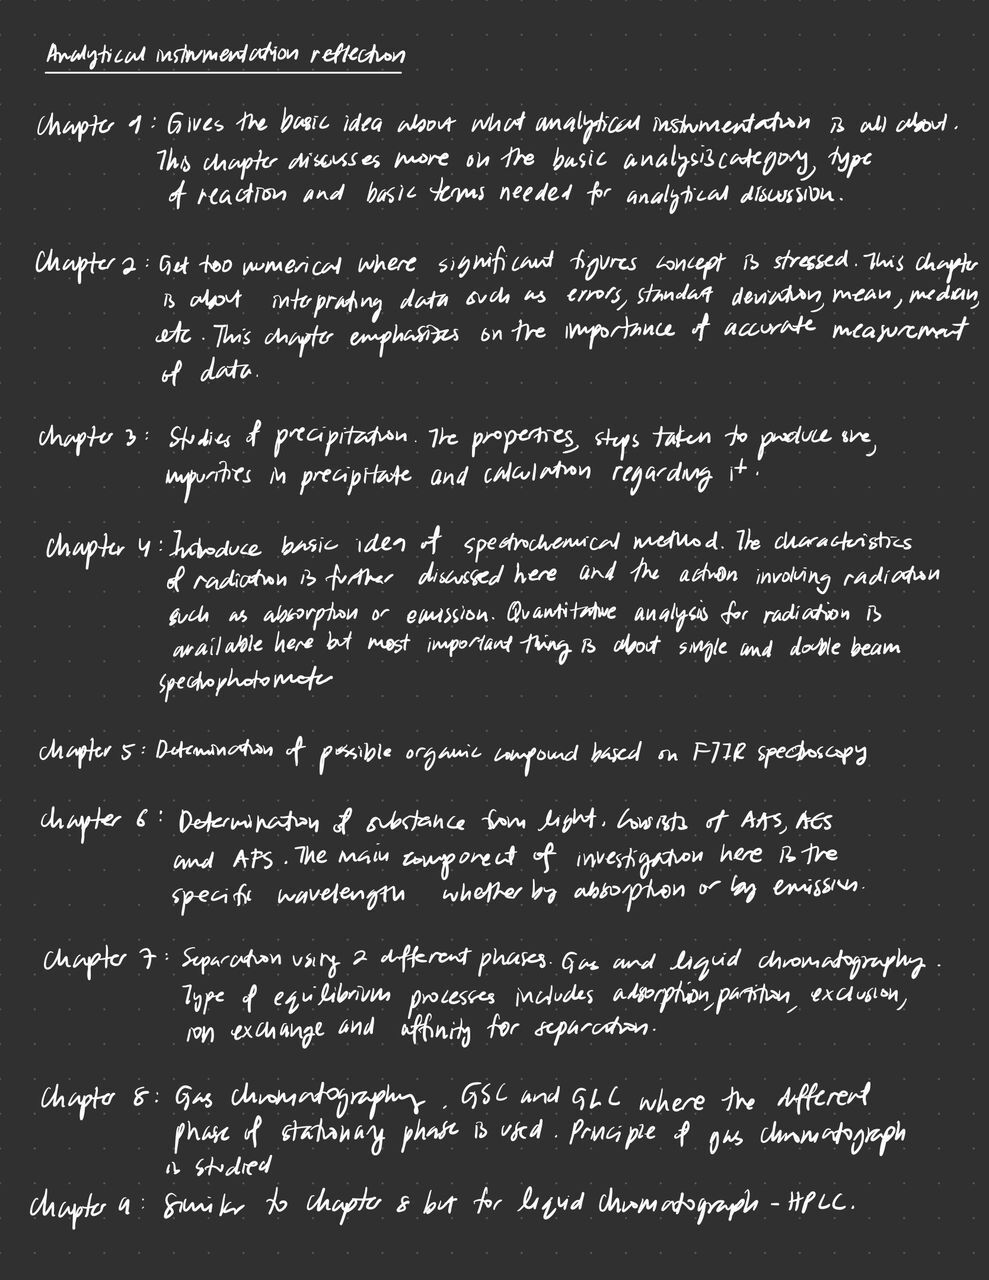 Analytical instrumentation reflection
Chapter 1: Gives the basic idea about what analytical instrumentation is all about.
This chapter discusses more on the basic analysis category, type
of reaction and basic terms needed for analytical discussion.
Chapter 2: Get too numerical where significant figures concept is stressed. This chapter
is about interprating data such as errors, standart deviation, mean, median,
etc. This chapter emphasizes on the importance of accurate measurement
of data.
Chapter 3: Studies of precipitation. The properties, steps taken to produce one,
impurities in precipitate and calculation regarding it.
Chapter 4: Introduce basic idea of spectrochemical method. The characteristics
of radiation is further discussed here and the action involving radiation
such as absorption or emission. Quantitative analysis for radiation is
available here but most important thing is about single and double beam
spectrophotometer
Chapter 5: Determination of possible organic compound based on FTIR spectroscopy
Chapter 6: Determination of substance from light. Consists of AAS, AES
and AFS. The main component of investigation here is the
specific wavelength whether by absorption or by emission.
Chapter 7: Separation using 2 different phases. Gas and liquid chromatography.
Type of equilibrium processes includes adsorption, partition, exclusion,
ion exchange and affinity for separation.
Chapter 8: Gas chromatography. GSC and GLC where the different
phase of stationary phase is used. Principle of gas chromatograph
is studied
Chapter 9: Similar to chapter 8 but for liquid chromatograph - HPLC.